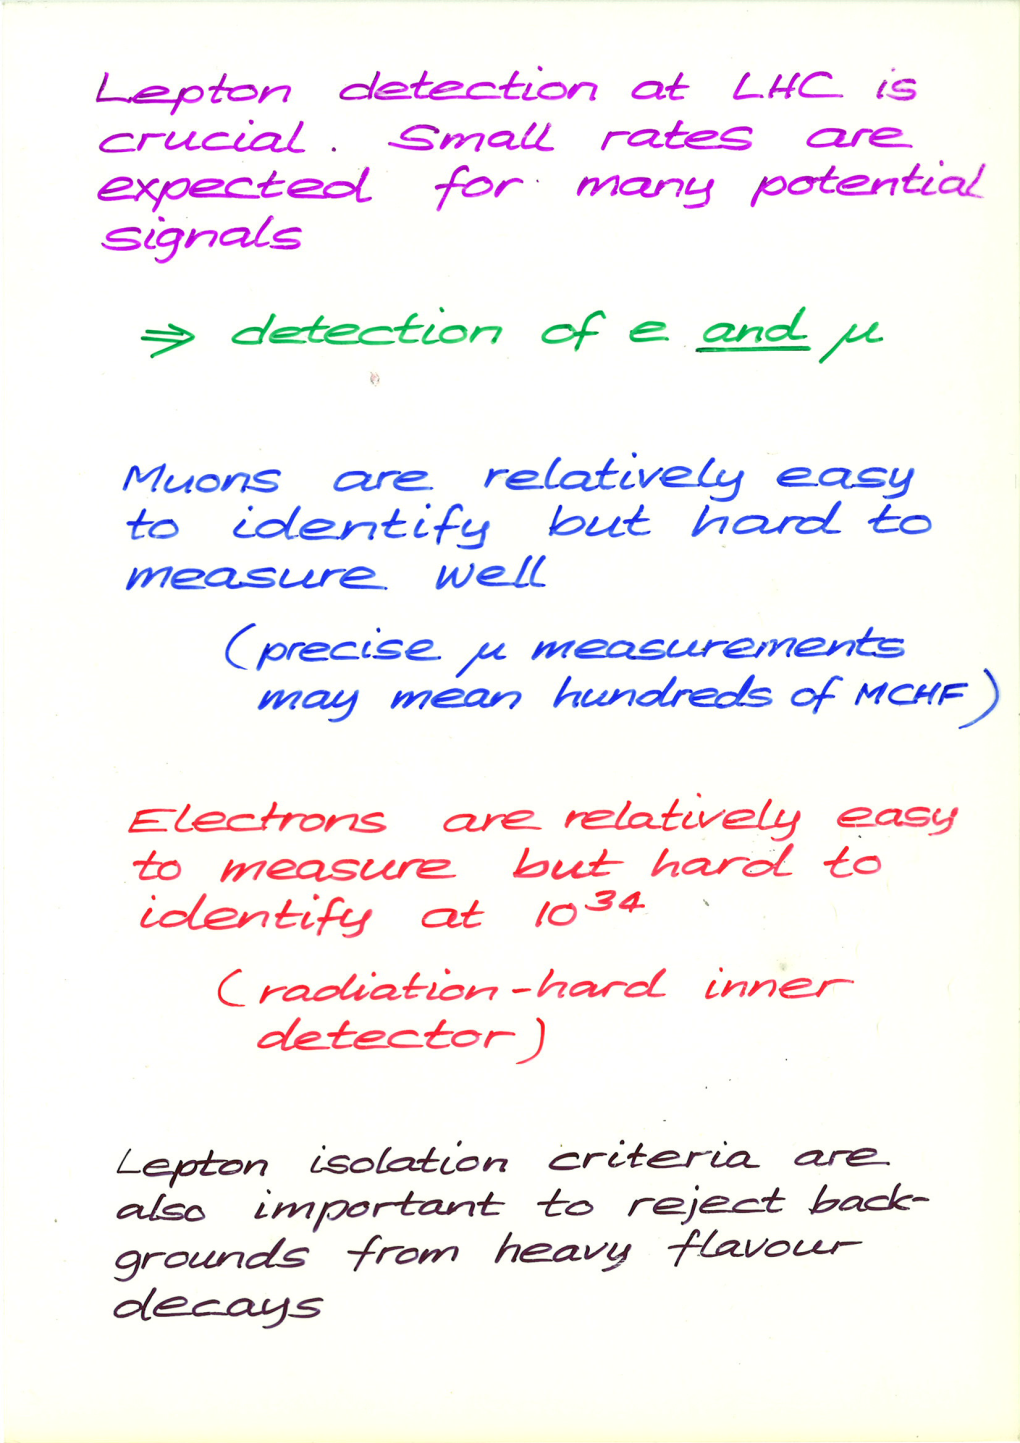 Lepton detection at LHC is
crucial. Small rates are
expected for many potential
signals
⇒ detection of e and μ
Muons are relatively easy
to identify but hard to
measure well
(precise μ measurements
may mean hundreds of MCHF)
Electrons are relatively easy
to measure but hard to
identify at 10³⁴
(radiation-hard inner
detector)
Lepton isolation criteria are
also important to reject back-
grounds from heavy flavour
decays